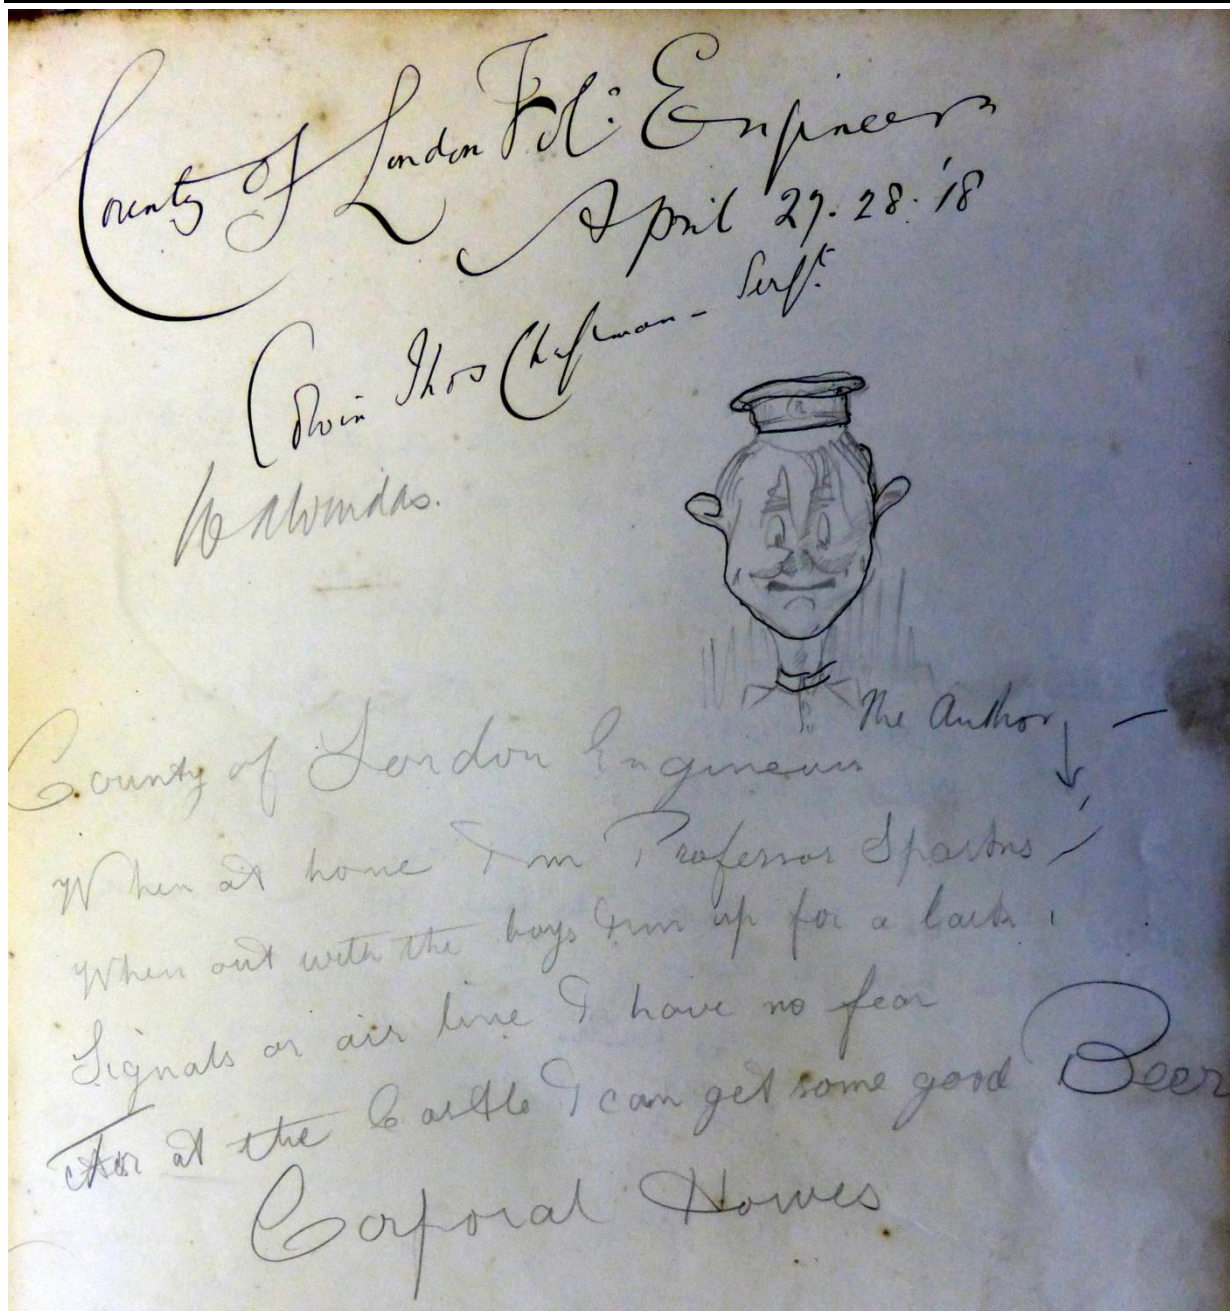 County of London Vol: Engineers
April 27. 28. '18
Edwin Thos Chapman - Sergt.
The Author
County of London Engineers
When at home I'm Professor Sparks
When out with the boys I'm up for a lark.
Signals or air line I have no fear
For at the Castle I can get some good Beer
Corporal Howes